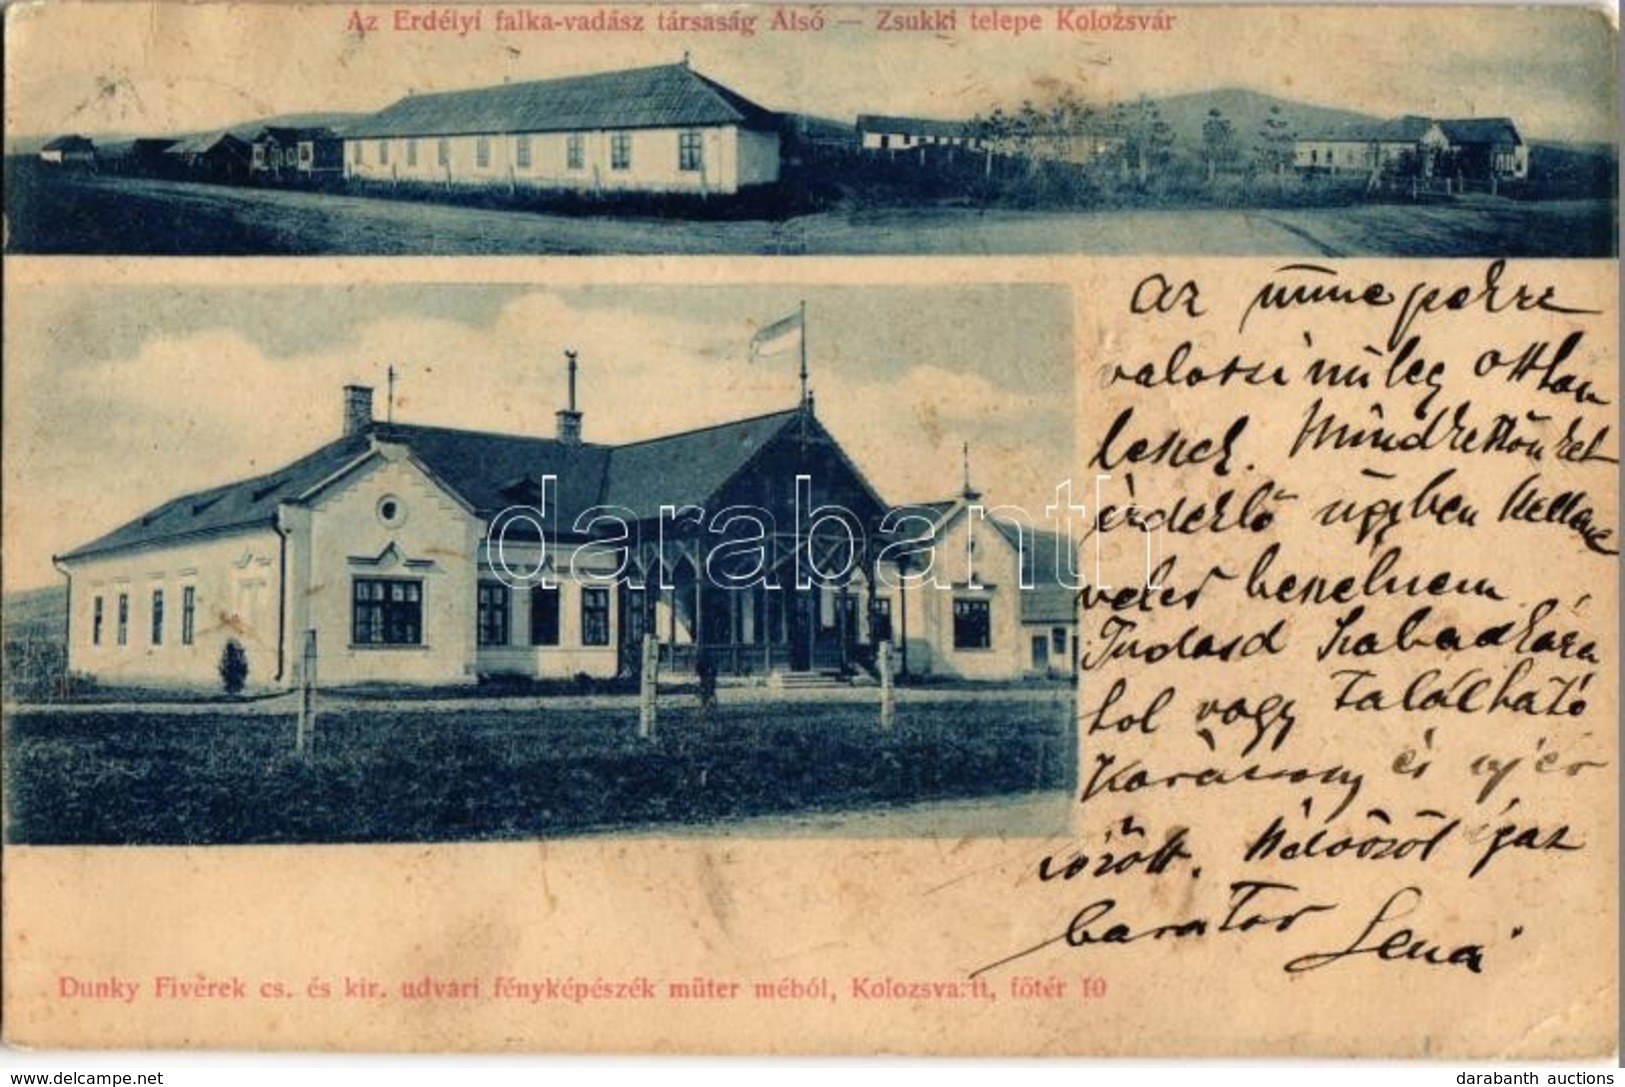 Az Erdélyi falka-vadász társaság Alsó — Zsukki telepe Kolozsvár
Az ünnepekre
valoszinüleg otthon
leszek. Mindkettönket
érdeklö ügyben kellene
veled beszelnem
Tudasd szabadkára
hol vagy található
Karácsony és ujév
között. Üdvözöl igaz
baratod
darabanth
Dunky Fivérek cs. és kir. udvari fényképészék müter méböl, Kolozsva:tt, fötér 10
delcampe.net
darabanth auctions